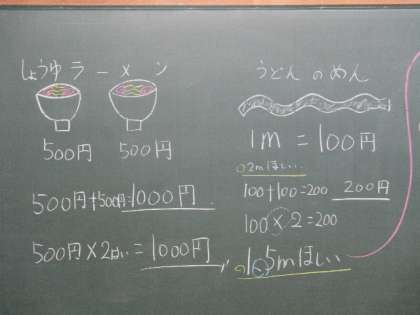 しょうゆラーメン
500円 500円
500円+500円=1000円
500円×2はい=1000円
うどんのめん
1m=100円
2mほしい
100+100=200 200円
100×2=200
1.5mほしい